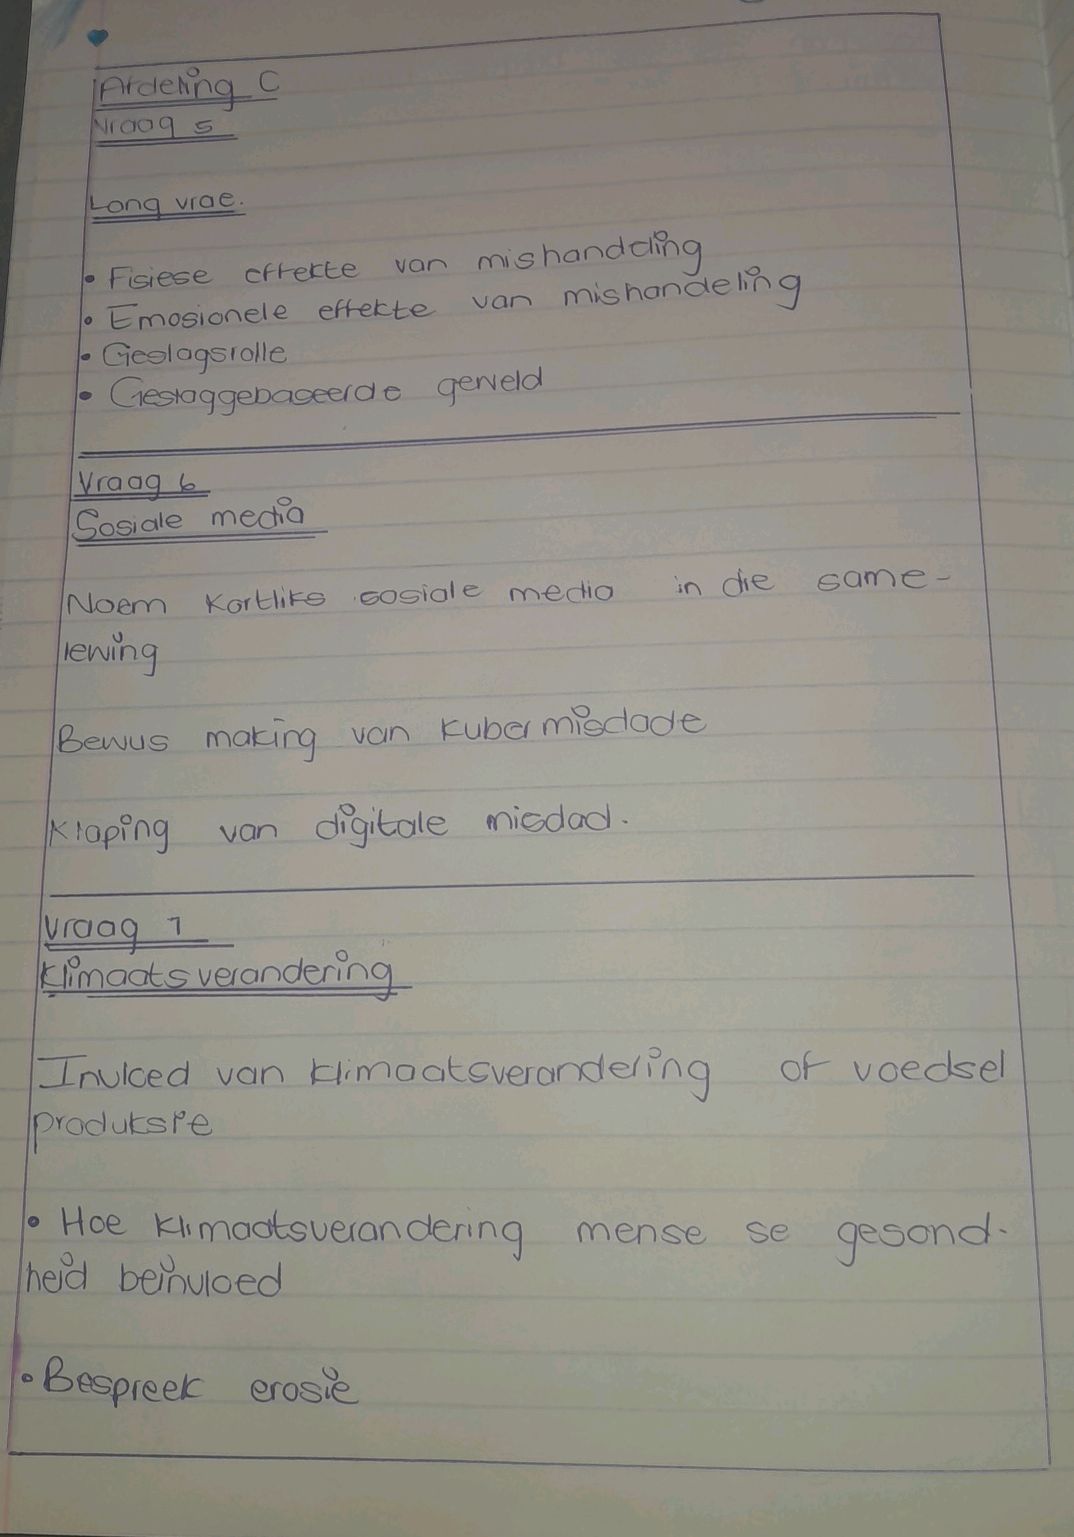 Afdeling C
Vraag 5
Lang vrae.
• Fisiese effekte van mishandeling
• Emosionele effekte van mishandeling
• Geslagsrolle
• Geslaggebaseerde geweld
Vraag 6
Sosiale media
Noem kortliks sosiale media in die same-
lewing
Bewus making van kubermisdade
Klaping van digitale misdad.
Vraag 7
Klimaatsverandering
Invloed van klimaatsverandering of voedsel
produksie
• Hoe klimaatsverandering mense se gesond-
heid beïnvloed
• Bespreek erosie